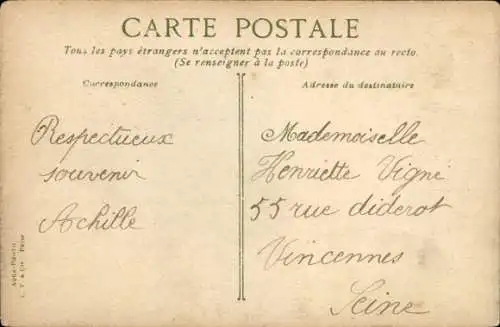 CARTE POSTALE
Tous les pays étrangers n'acceptent pas la correspondance au recto.
(Se renseigner à la poste)
Correspondance
Adresse du destinataire
Respectueux
souvenir
Achille
Mademoiselle
Henriette Vigné
55 rue diderot
Vincennes
Seine